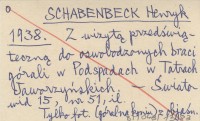 SCHABENBECK Henryk
1938. Z wizytą przedświą-
teczną do oswobodzonych braci
górali w Podspadach w Tatrach
Jaworzyńskich — Światowid
15, nr 51, il.
Tylko fot. (góralną koniu) z objaśn.